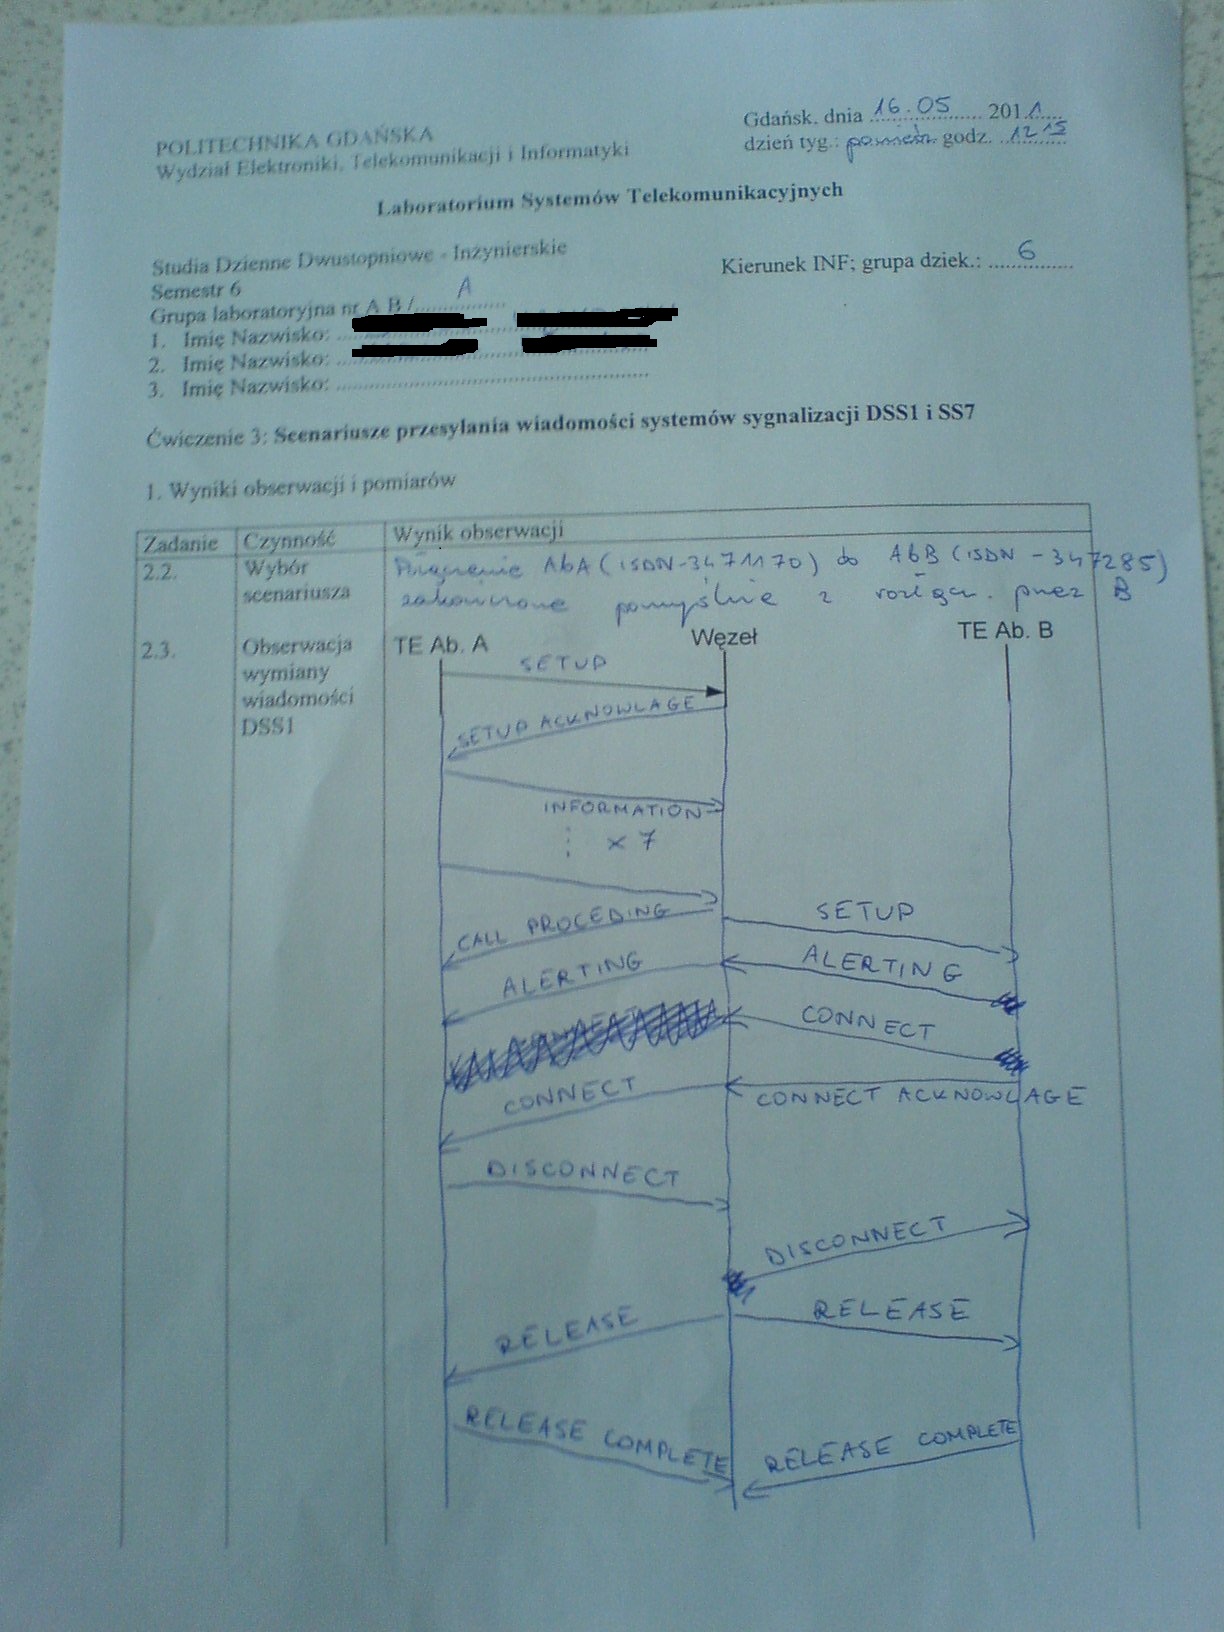 Gdańsk, dnia 16.05 2011
dzień tyg.: godz. 12 15
POLITECHNIKA GDAŃSKA
Wydział Elektroniki, Telekomunikacji i Informatyki
Laboratorium Systemów Telekomunikacyjnych
Studia Dzienne Dwustopniowe - Inżynierskie
Kierunek INF; grupa dziek.: 6
Semestr 6
Grupa laboratoryjna nr A B / A
1. Imię Nazwisko:
2. Imię Nazwisko:
3. Imię Nazwisko:
Ćwiczenie 3: Scenariusze przesyłania wiadomości systemów sygnalizacji DSS1 i SS7
1. Wyniki obserwacji i pomiarów
Zadanie Czynność Wynik obserwacji
2.2. Wybór scenariusza
Połączenie AbA (ISDN-3471170) do AbB (ISDN - 347285)
zakończone pomyślnie z rozłącz. przez B
2.3. Obserwacja wymiany wiadomości DSS1
TE Ab. A Węzeł TE Ab. B
SETUP
SETUP ACKNOWLAGE
INFORMATION
x 7
CALL PROCEDING SETUP
ALERTING ALERTING
CONNECT
CONNECT CONNECT ACKNOWLAGE
DISCONNECT
DISCONNECT
RELEASE RELEASE
RELEASE COMPLETE RELEASE COMPLETE